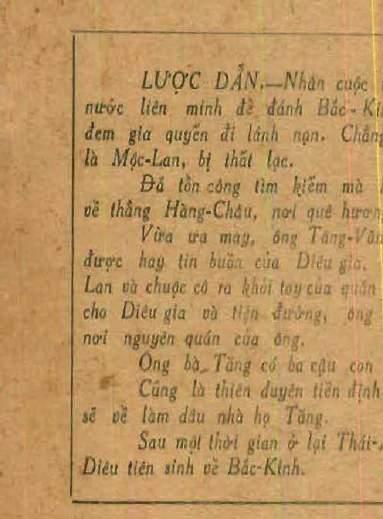 LƯỢC DẪN.—Nhân cuộc
nước liên minh để đánh Bắc-Ki
đem gia quyến đi lánh nạn. Chẳng
là Mộc-Lan, bị thất lạc.
Đã tồn công tìm kiếm mà
về thẳng Hàng-Châu, nơi quê hương
Vừa ưa may, ông Tăng-Vă
được hay tin buồn của Diêu gia.
Lan và chuộc cô ra khỏi tay của quân
cho Diêu gia và tiện đường, ông
nơi nguyên quán của ông.
Ông bà Tăng có ba cậu con
Cũng là thiên duyên tiền định
sẽ về làm dâu nhà họ Tăng.
Sau một thời gian ở lại Thái-
Diêu tiên sinh về Bắc-Kinh.